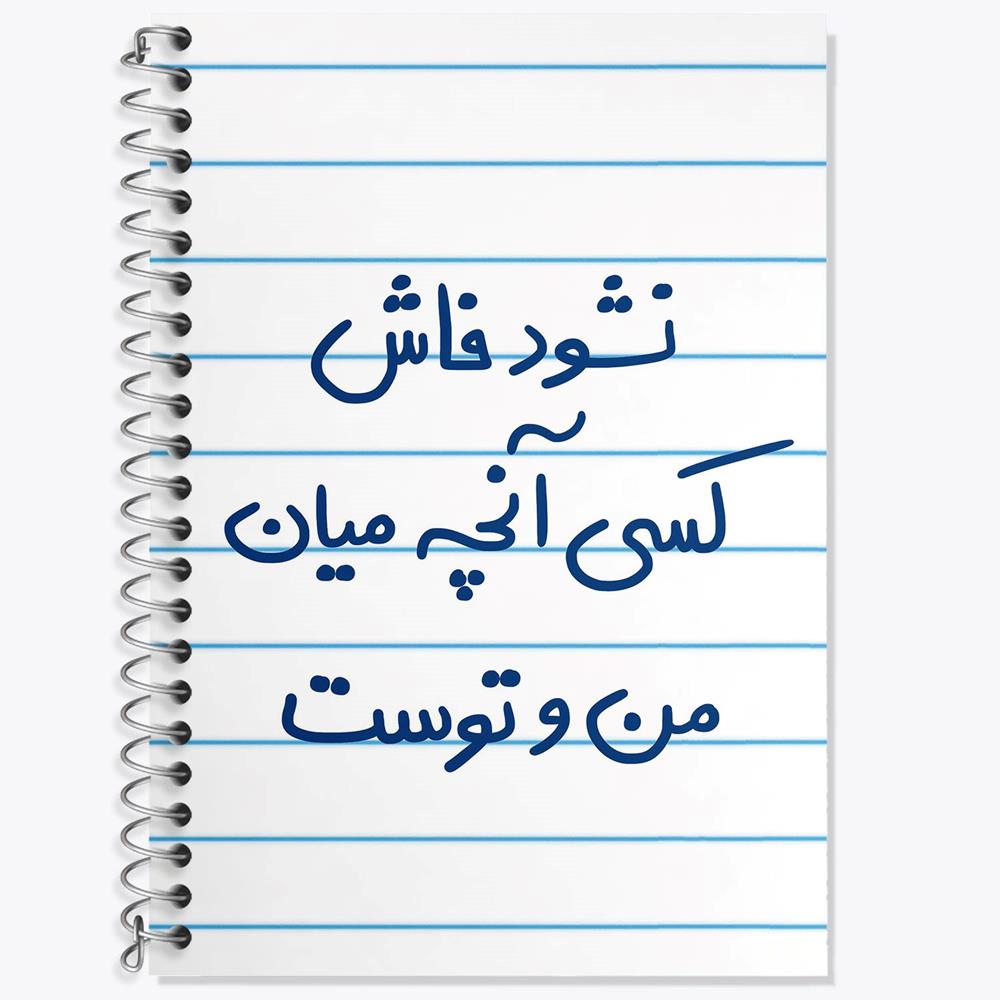 نشود فاش
کسی آنچه میان
من و توست